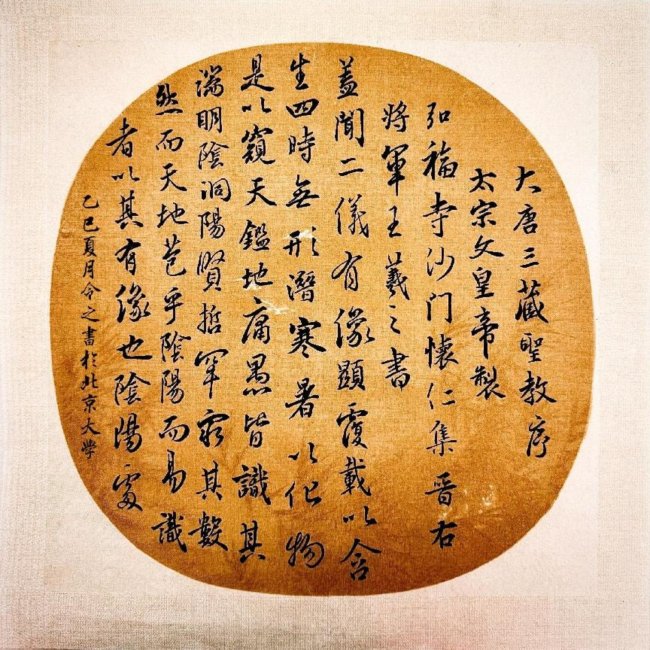 大唐三藏聖教序
太宗文皇帝製
弘福寺沙门懷仁集晋右
將軍王羲之書
蓋聞二儀有像顯覆載以含
生四時無形潛寒暑以化物
是以窺天鑑地庸愚皆識其
端明陰洞陽賢哲罕窮其數
然而天地苞乎陰陽而易識
者以其有像也陰陽處
乙巳夏月令之書於北京大学